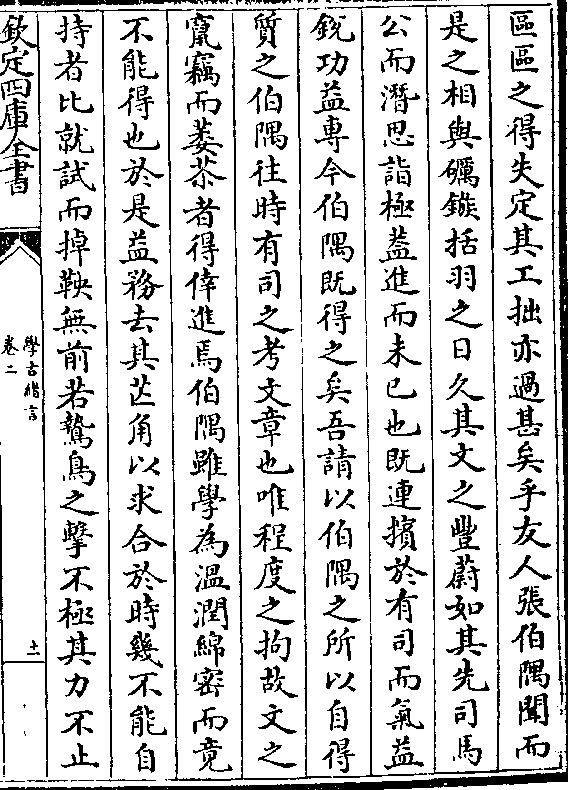 區區之得失定其工拙亦過甚矣乎友人張伯隅聞而
是之相與礪鏃括羽之日久其文之豐蔚如其先司馬
公而潛思詣極葢進而未已也既連擯於有司而氣益
銳功益專今伯隅既得之矣吾請以伯隅之所以自得
質之伯隅往時有司之考文章也唯程度之拘故文之
竄竊而萎苶者得倖進焉伯隅雖學為溫潤綿密而竟
不能得也於是益務去其芒角以求合於時幾不能自
持者比就試而掉鞅無前若鷙鳥之擊不極其力不止
欽定四庫全書
學古緒言
卷二
十一